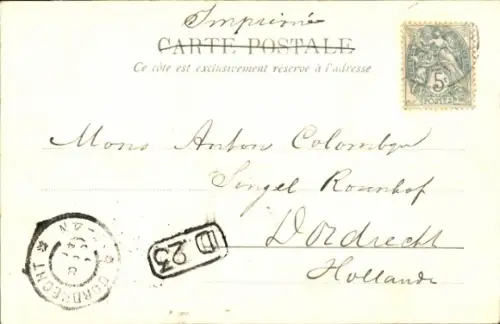 Imprimé
CARTE POSTALE
Ce côté est exclusivement réservé à l'adresse
5c
POSTES
Mons Anton
Singel
Dordrecht
Hollande
D 23
DORDRECHT